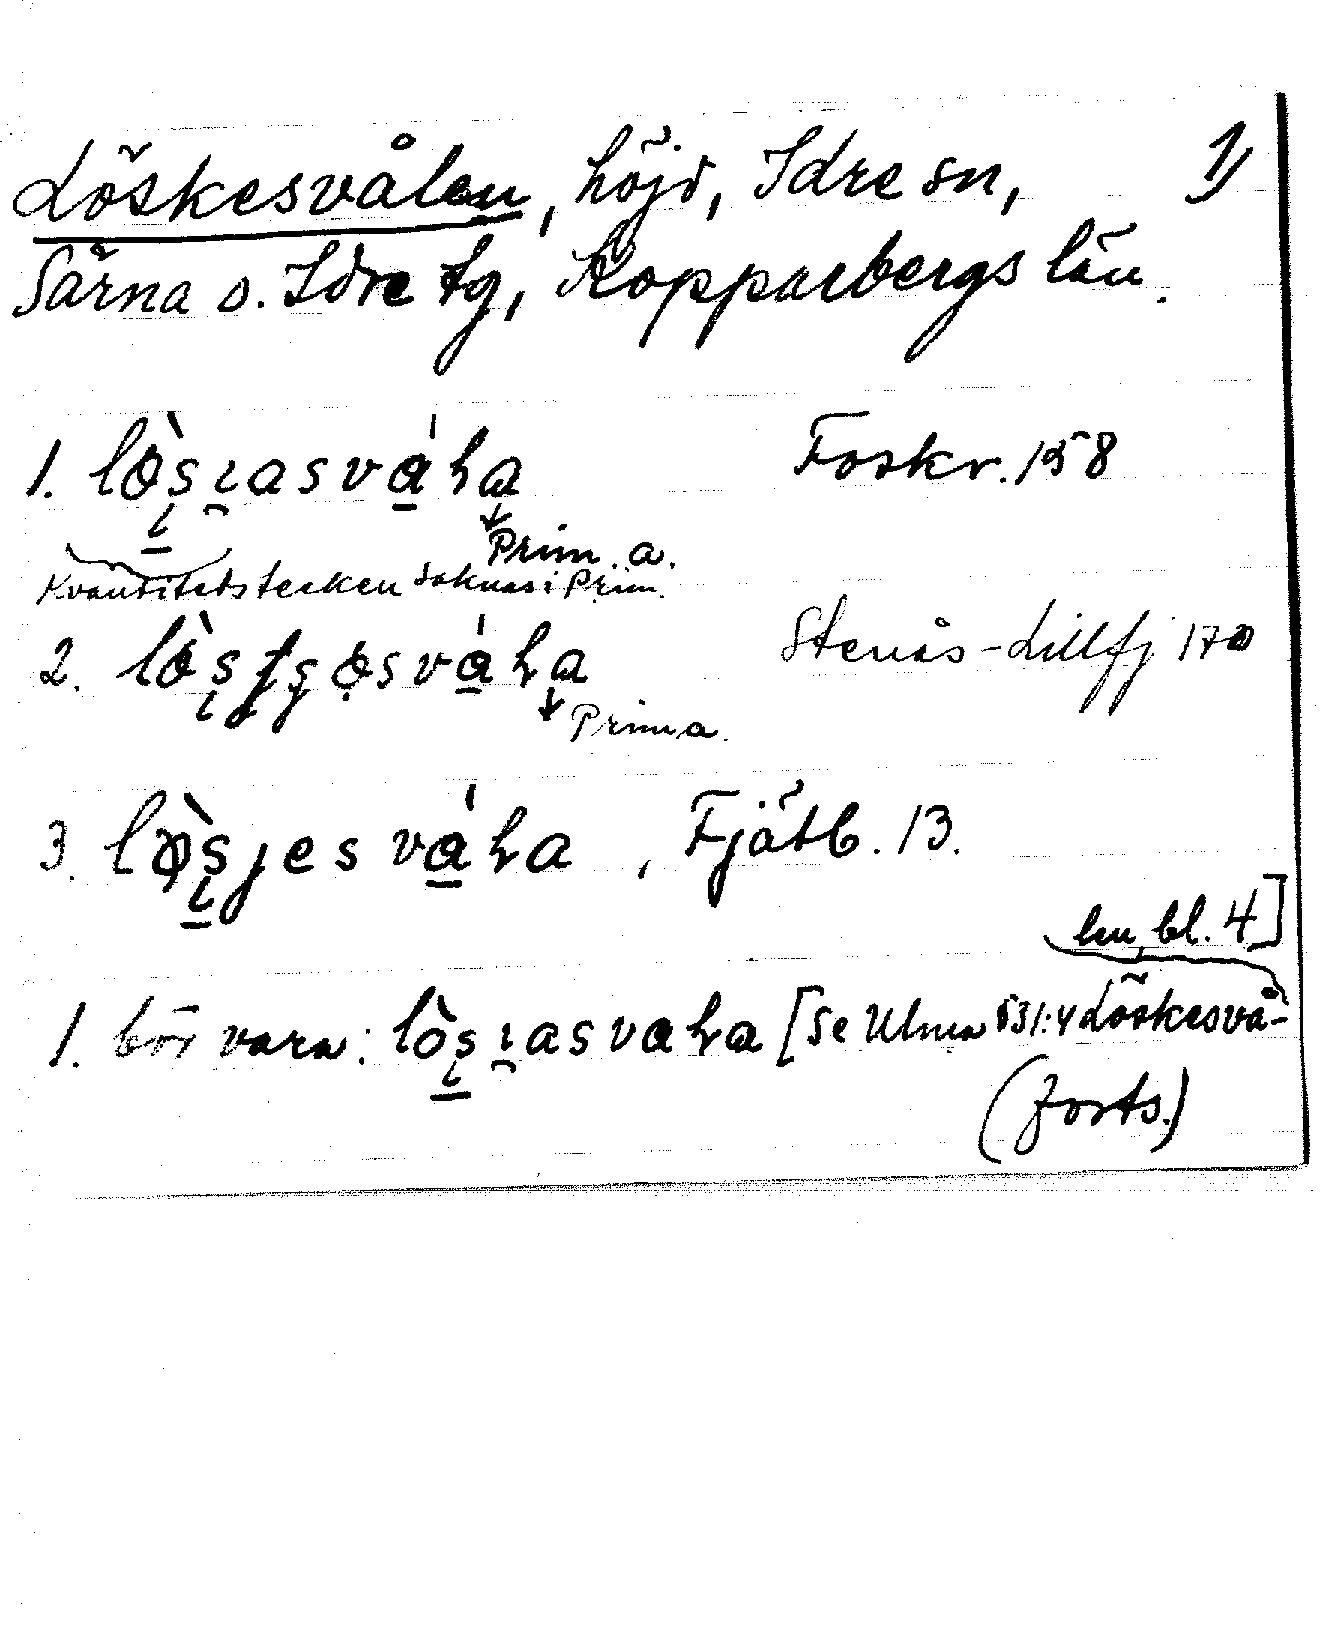 Löskesvålen, höjd, Idre sn, 1)
Särna o. Idre tg, Kopparbergs län.
1. Foskr. 158
Prim. a.
Kvantitetstecken saknas i Prim.
2. Stenås-Lillfj 170
Prim a.
3. , Fjätb. 13.
ln, bl. 4]
1. bör vara: [Se Ulma 531:4 Löskesvå-
(forts.)